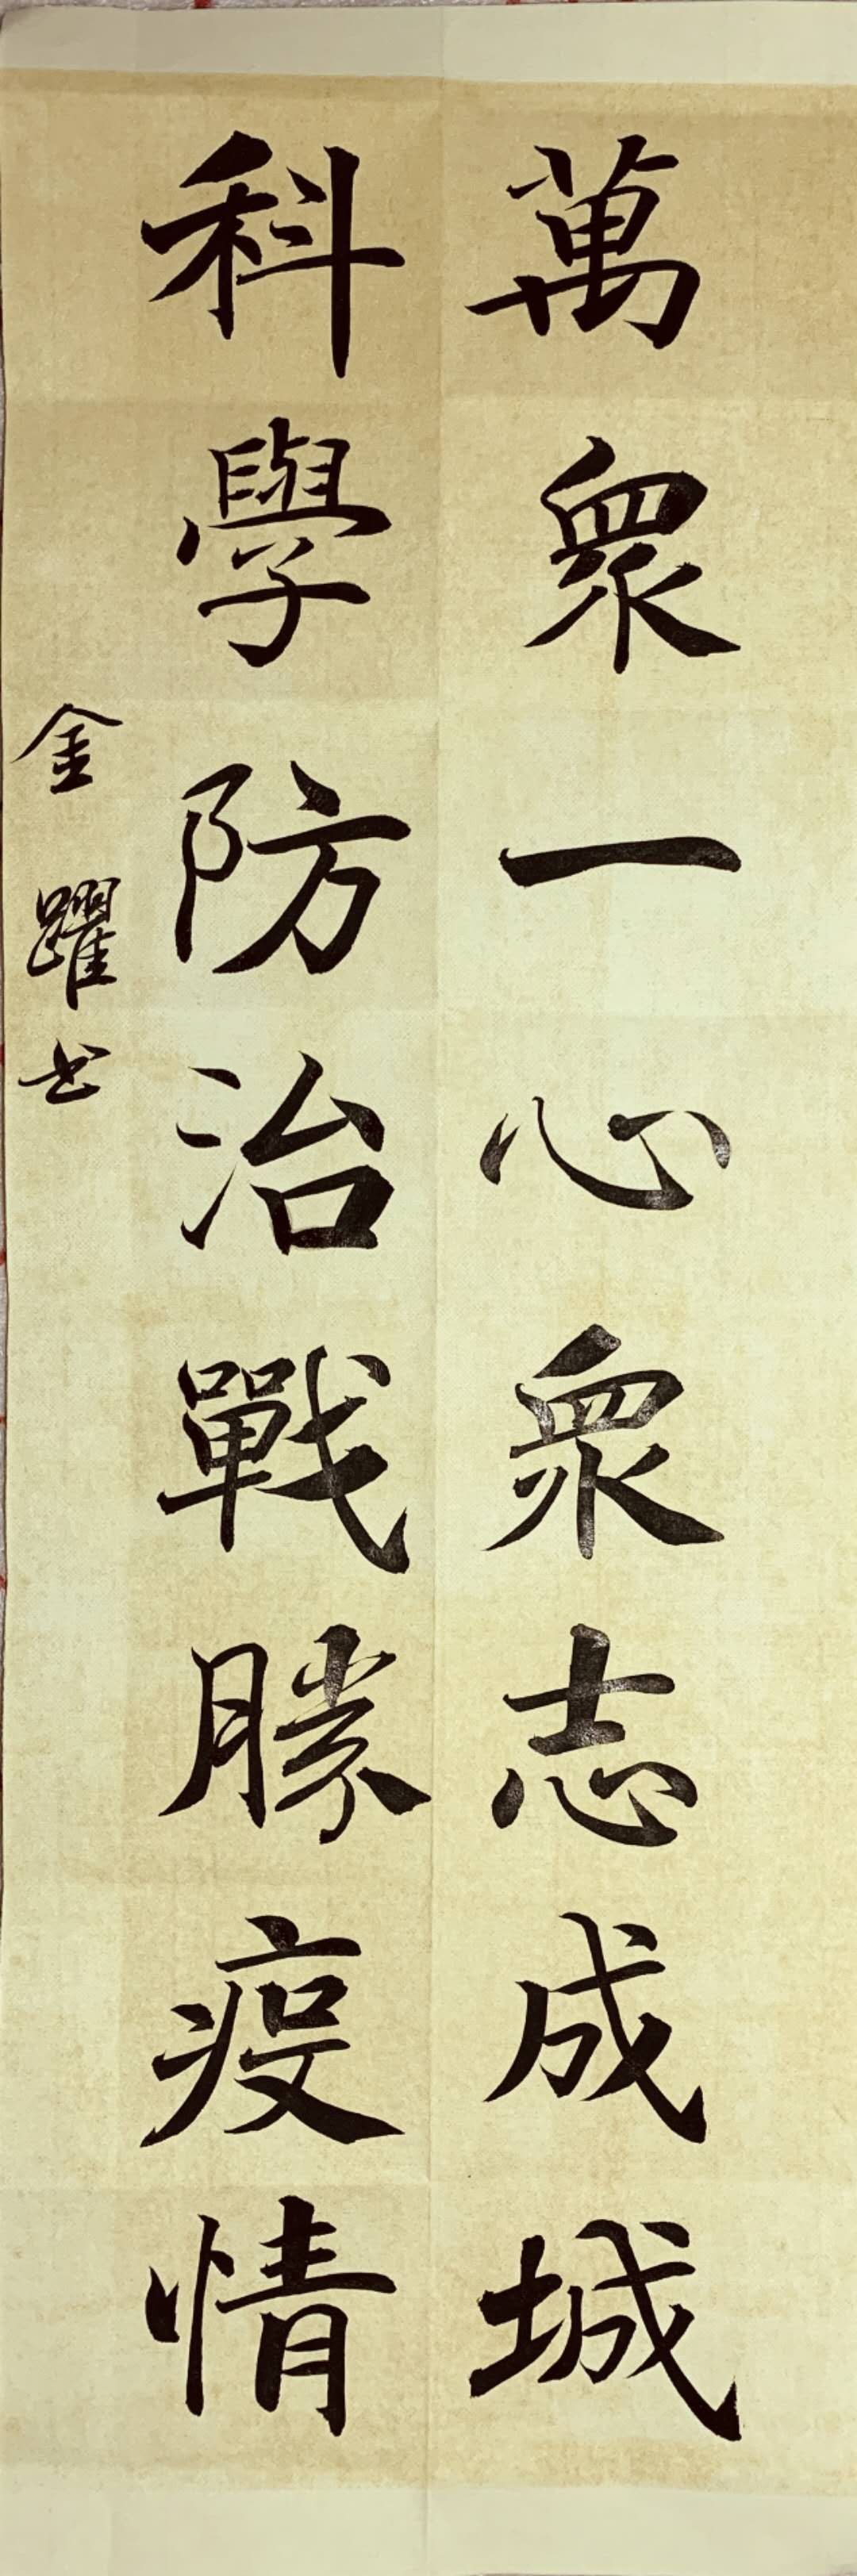 萬眾一心眾志成城
科學防治戰勝疫情
金躍书